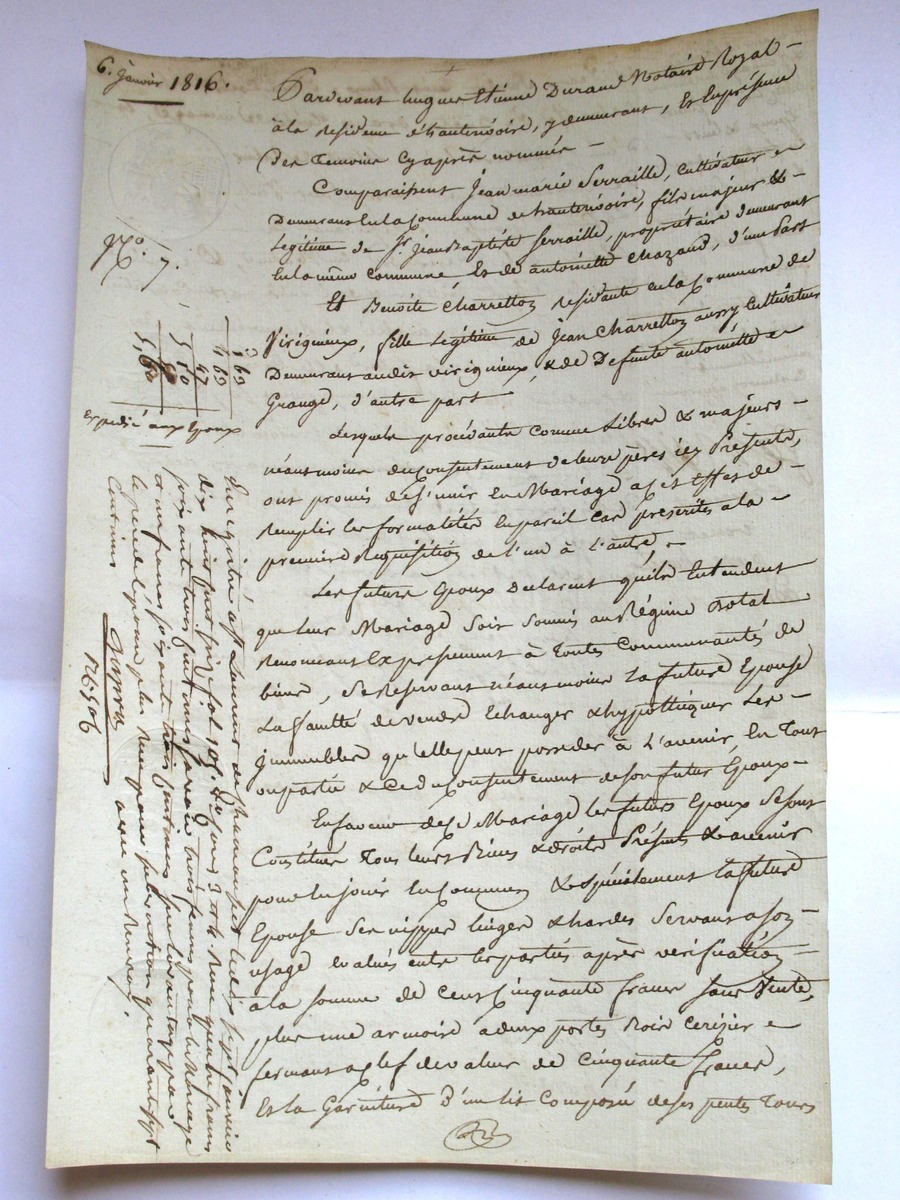 6. janvier 1816.
Pardevant hugues Etienne Durand Notaire Royal
à la residence d'hauterivoire, y demeurant, Et En présence
Des Temoins Cy après nommés
Comparaissent Jean marie Serraille, Cultivateur
Demeurant En la Commune de hauterivoire, fils majeur &
Legitime de Sr. Jean Baptiste Serraille, propriétaire demeurant
En la même Commune Et de antoinette Chazaud, d'une Part
Et Benoite Charretton residante en la Commune de
Virigneux, fille Legitime de Jean Charretton aussy Cultivateur
Demeurant audit virigneux, & de Defunte antoinette
Grange, d'autre part
Lesquels procédants Comme Libres & majeurs
néantmoins du Consentement de leurs pères icy Présents,
ont promis de s'unir En Mariage & de
Remplir les formalités En pareil Cas prescrites à la
premiere Requisition de l'un à l'autre.
Les futurs Epoux declarent qu'ils Entendent
que leur Mariage Soit Soumis au Régime dotal
Renonceant Expressement à Toutes Communautés de
biens, Se Reservant néantmoins la future Epouse
La faculté de vendre Echanger & hypothequer Les
immeubles qu'elle peut posseder à L'avenir, En Tout
ou partie & Ce du Consentement de son futur Epoux
En faveur de Ce Mariage les futurs Epoux Se sont
Constitués Tous leurs Biens & droits Présents & avenir
pour En jouir En Commun & spécialement la future
Epouse Ses nippes linges & hardes Servans a son
usage Evalués entre les parties après vérification
à la Somme de Cent Cinquante francs Sans Vente,
plus une armoire a deux portes Bois Cerisier
fermant a Clef de valeur de Cinquante francs,
Et la Garniture d'un lit Composé de ses pentes Tours
No. 7.
1 69
3 69
47
5 10
5,60
Expedié aux Epoux
Enregistré à St Laurent de chamousset le dix sept janvier
dix huit cent seize fol 105. Ro Case 3 et 4 Reçu quatre francs
soixante trois centimes savoir trois francs pour le mariage
et un franc soixante trois centimes
centimes
126,506